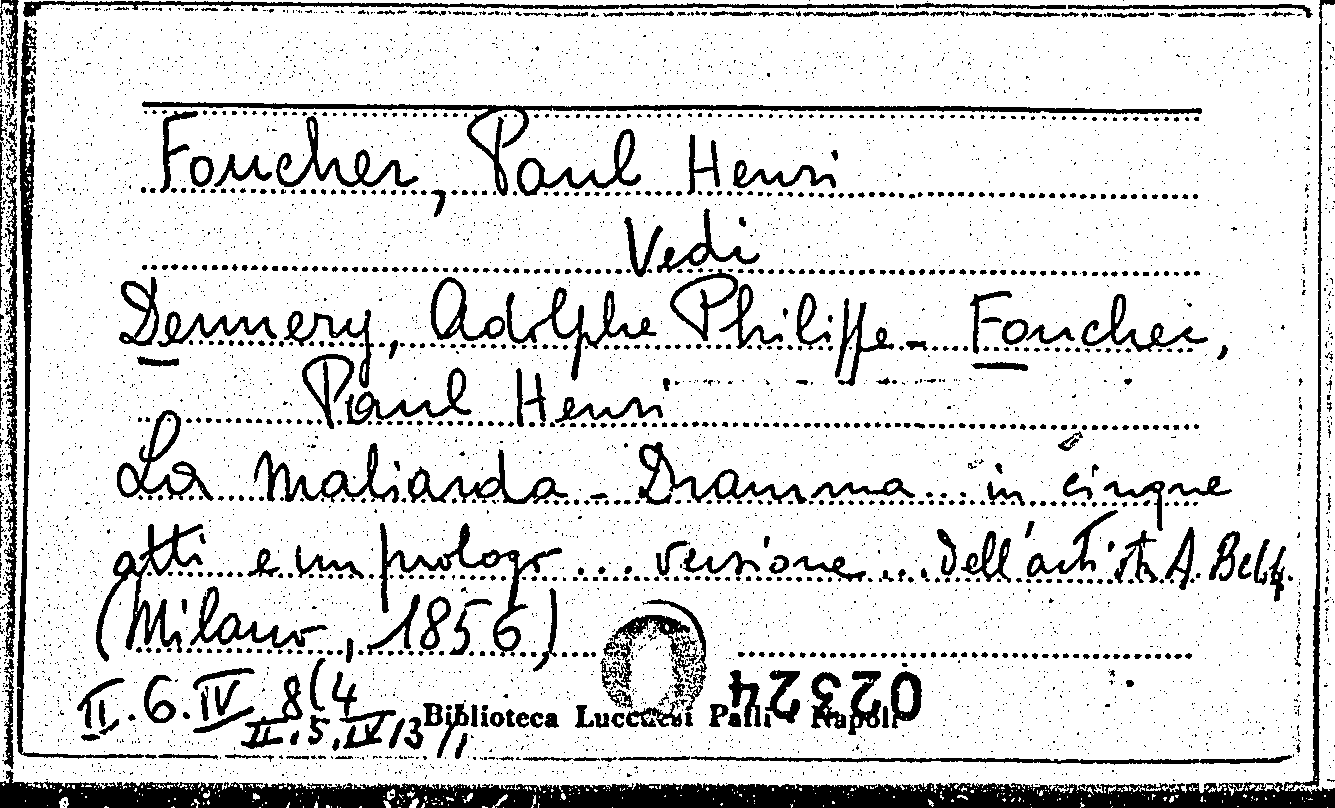 Foucher, Paul Henri
Vedi
Dennery, Adolphe Philippe - Foucher,
Paul Henri
La Maliarda - Dramma... in cinque
atti e un prologo... versione... dell'artista A.
(Milano, 1856)
II.6.IV 8(4
II.5.IV/3
Biblioteca Lucchesi Palli - Napoli
02324